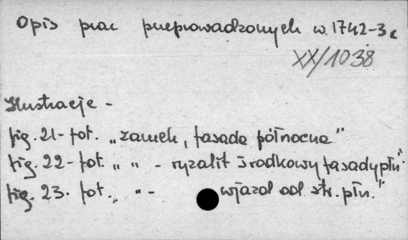 Opis prac przeprowadzonych w. 1742-3 r
XX/1038
Ilustracje -
fig. 21- fot. „zamek, fasada północna"
fig. 22- fot. „ „ - ryzalit środkowy fasady płn"
fig. 23. fot. „ „ - wjazd od str. płn."